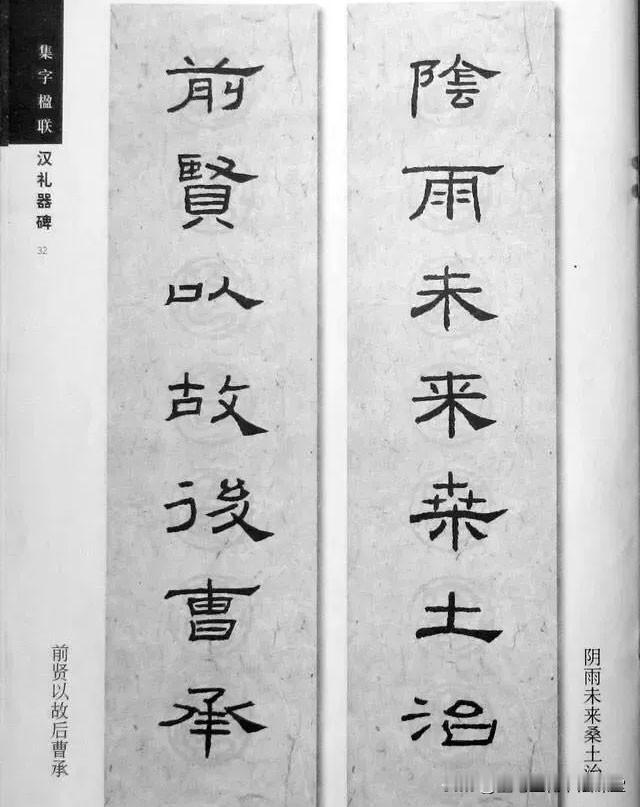 陰雨未来桒土治
前賢以故後曺承
阴雨未来桑土治
前贤以故后曹承
集字楹联
汉礼器碑
32